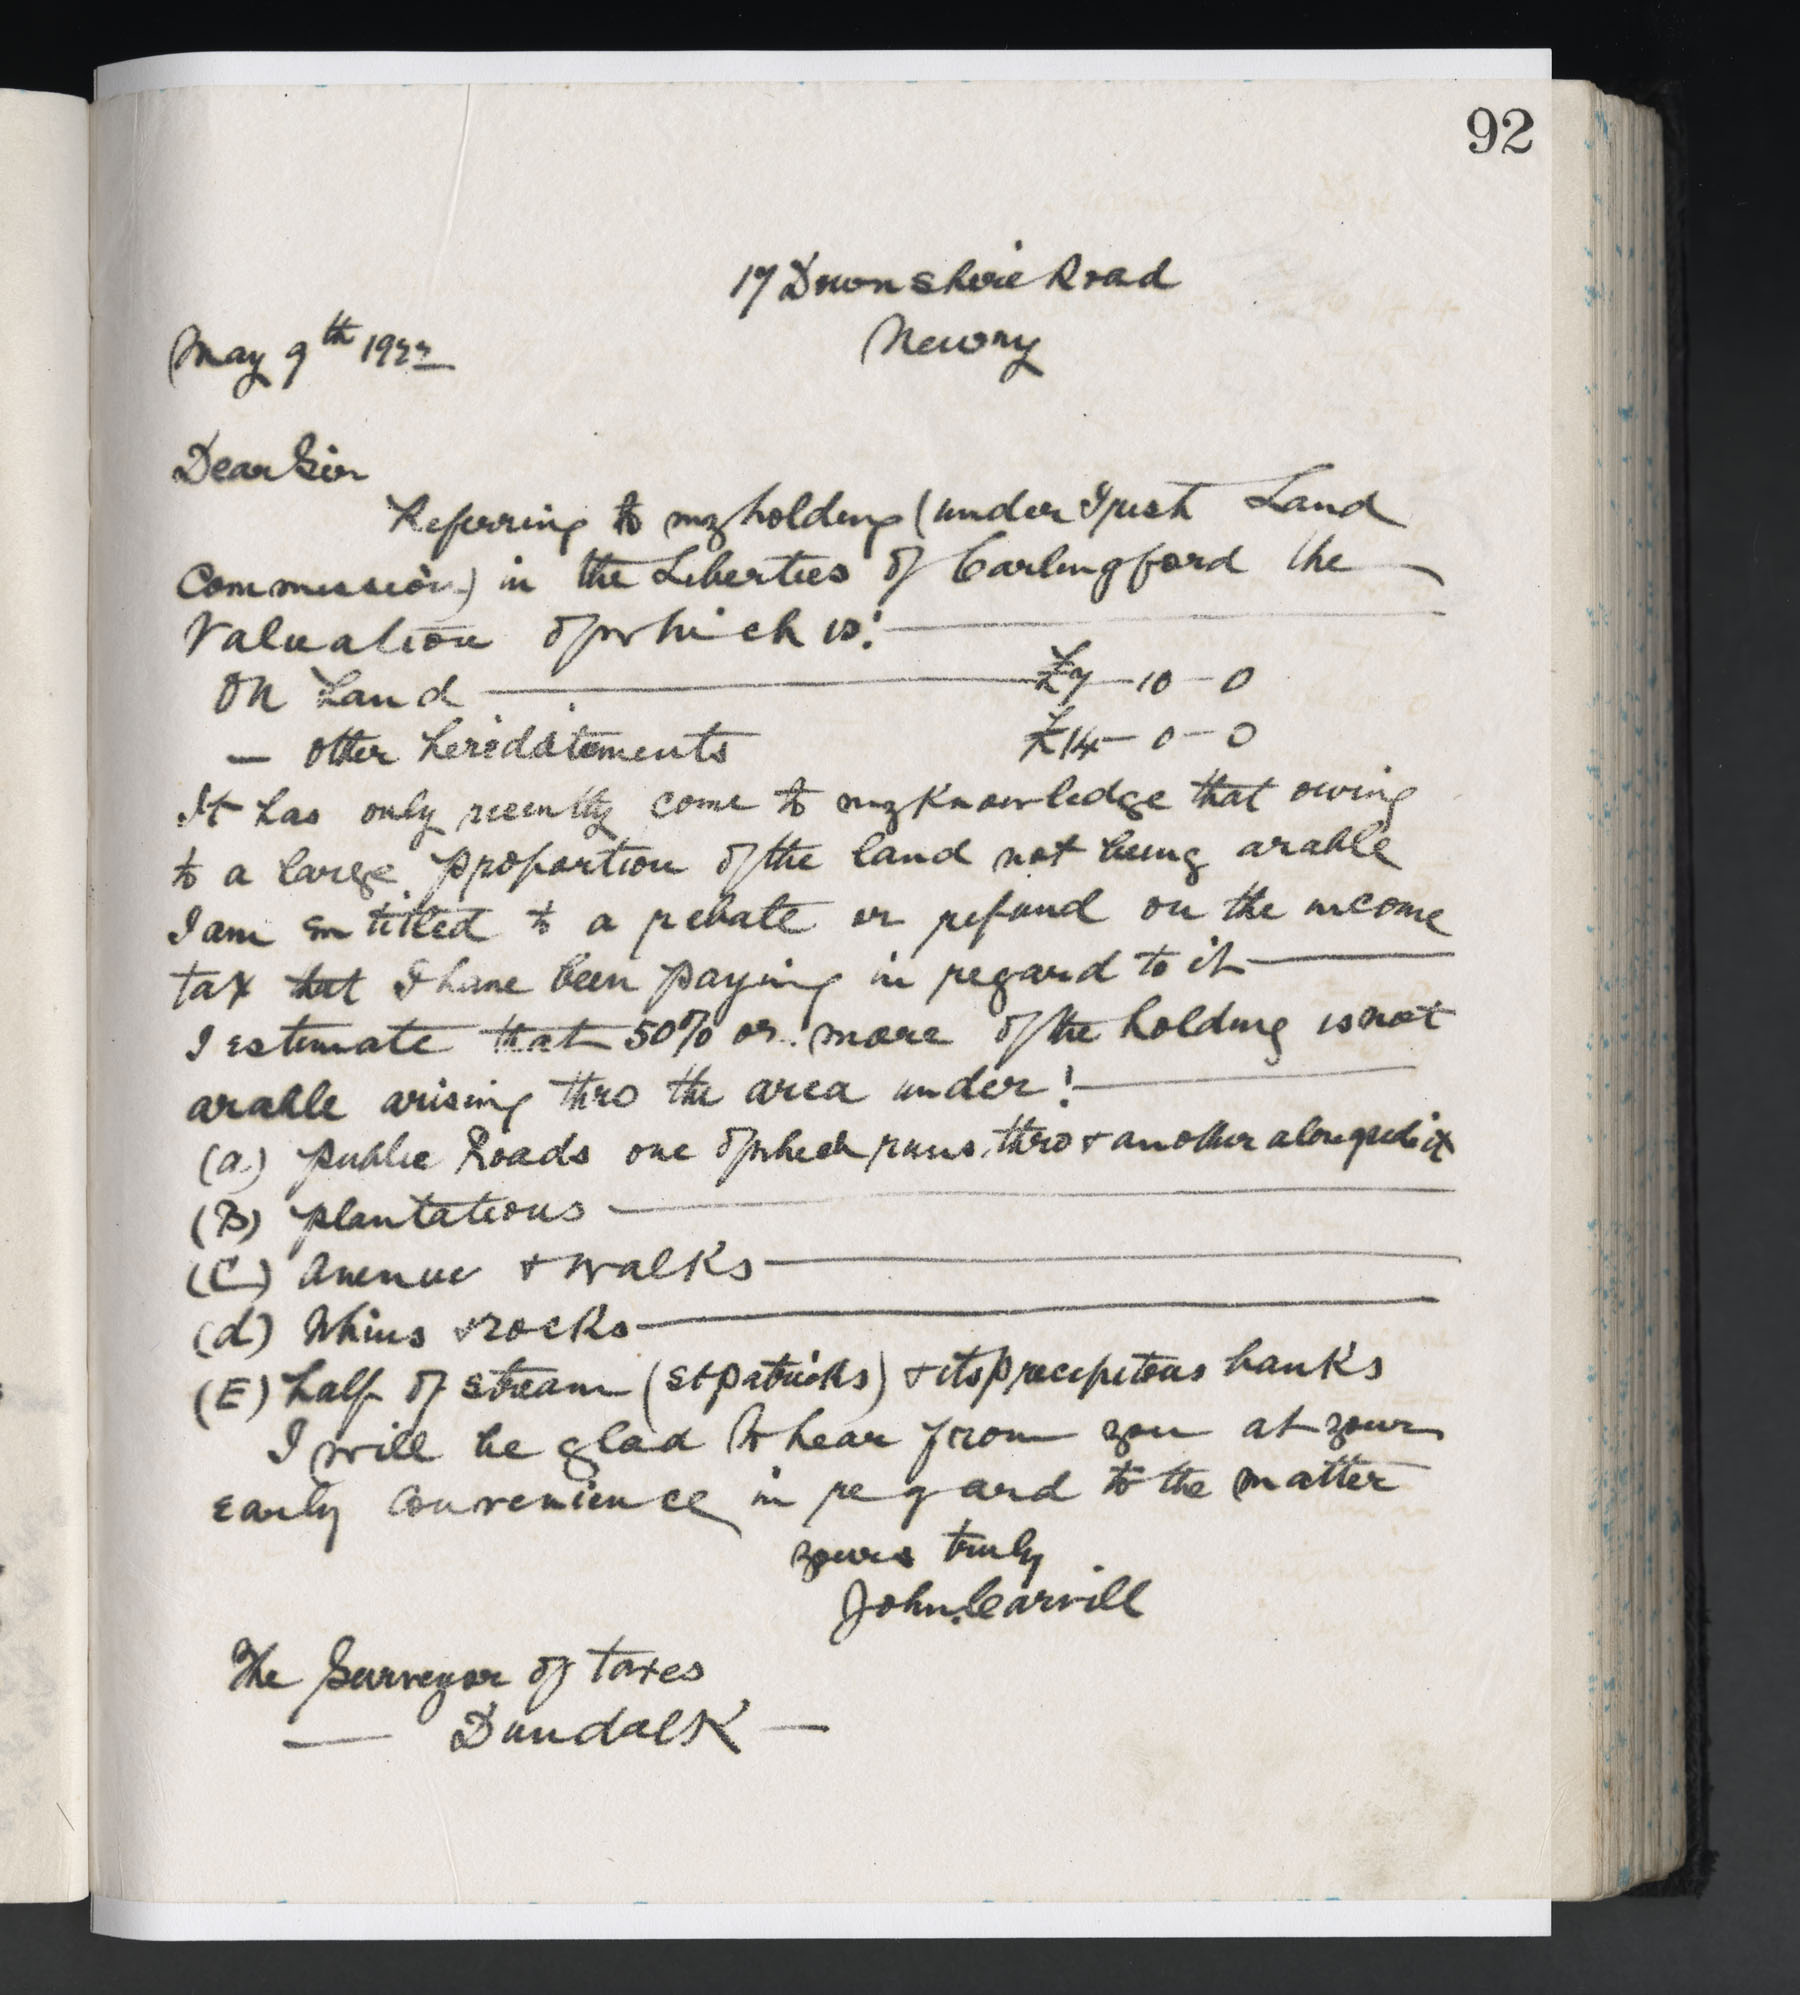 92
17 Downshire Road
Newry
May 9th 1922
Dear Sir
Referring to my holding (under Irish Land
Commission) in the Liberties of Carlingford the
Valuation of which is:
On Land £7-10-0
- other heridatements £14-0-0
It has only recently come to my knowledge that owing
to a large proportion of the land not being arable
I am entitled to a rebate or refund on the income
tax that I have been paying in regard to it
I estimate that 50% or more of the holding is not
arable arising thro the area under:
(a) public Roads one of which runs thro & another alongside it
(B) plantations
(C) Avenue & walks
(d) Whins & rocks
(E) half of stream (St patricks) & its precipitous banks
I will be glad to hear from you at your
Early Convenience in regard to the matter
yours truly
John Carvill
The Surveyor of taxes
- Dundalk -